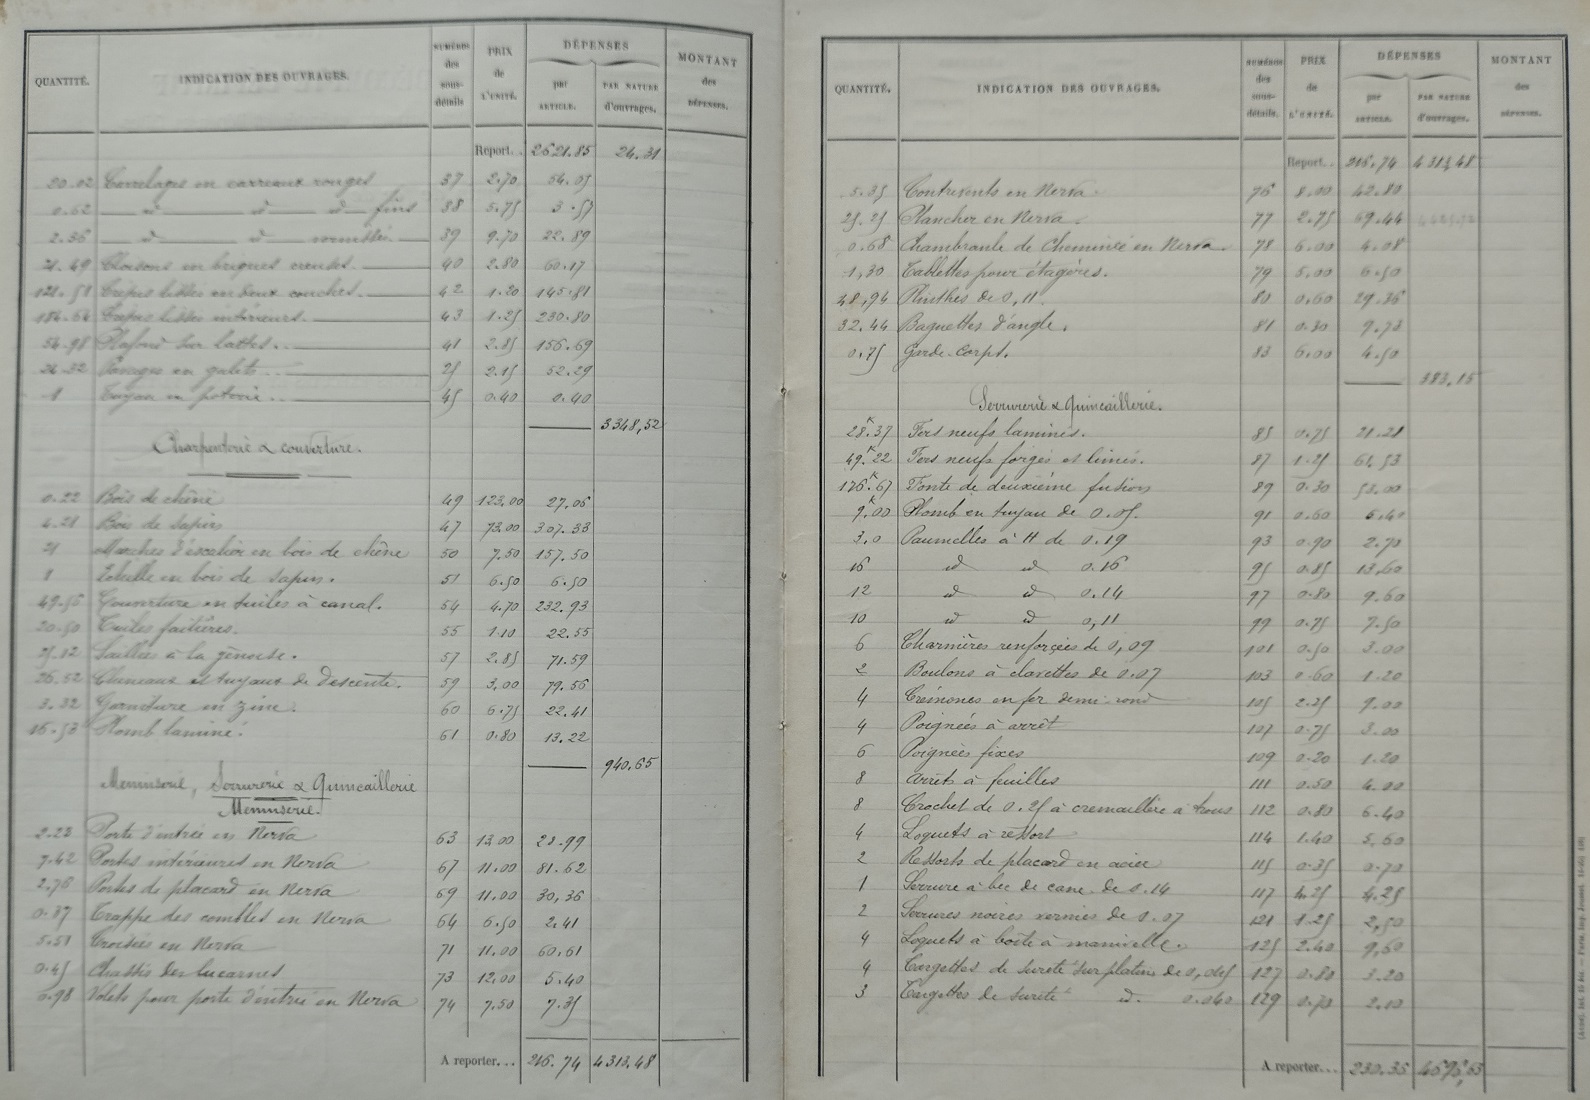 QUANTITÉ. INDICATION DES OUVRAGES. NUMÉROS des sous-détails PRIX de L'UNITÉ. DÉPENSES par ARTICLE. PAR NATURE d'ouvrages. MONTANT des DÉPENSES.
Report. . 2621.85 24.31
20.02 Carrelages en carreaux rouges 37 2.70 54.05
0.62 d° d° d° fins 38 5.75 3.57
2.36 d° d° vernissés 39 9.70 22.89
21.49 Cloisons en briques creuses. 40 2.80 60.17
121.51 Crépis lissés en deux couches. 42 1.20 145.81
184.64 Crépis lissés intérieurs. 43 1.25 230.80
54.98 Plafond sur lattes. 41 2.85 156.69
24.32 Pavages en galets 25 2.15 52.29
1 Tuyau en poterie 45 0.40 0.40
3348,52
Charpenterie & couverture.
0.22 Bois de chêne 49 123.00 27.06
4.21 Bois de sapin 47 73.00 307.33
21 Marches d'escalier en bois de chêne 50 7.50 157.50
1 Echelle en bois de sapin. 51 6.50 6.50
49.56 Couverture en tuiles à canal. 54 4.70 232.93
20.50 Tuiles faitières. 55 1.10 22.55
25.12 Saillies à la génoise. 57 2.85 71.59
26.52 Cheneaux et tuyaux de descente. 59 3.00 79.56
3.32 Garniture en zinc. 60 6.75 22.41
16.53 Plomb laminé. 61 0.80 13.22
940.65
Menuiserie, Serrurerie & Quincaillerie
Menuiserie.
2.23 Porte d'entrée en Nerva 63 13.00 28.99
7.42 Portes intérieures en Nerva 67 11.00 81.62
2.76 Portes de placard en Nerva 69 11.00 30,36
0.87 Trappe des combles en Nerva 64 6.50 2.41
5.51 Croisées en Nerva 71 11.00 60.61
0.45 Chassis des lucarnes 73 12.00 5.40
0.98 Volets pour porte d'entrée en Nerva 74 7.50 7.35
A reporter. . . 216.74 4313.48
QUANTITÉ. INDICATION DES OUVRAGES. NUMÉROS des sous-détails. PRIX de L'UNITÉ. DÉPENSES par ARTICLE. PAR NATURE d'ouvrages. MONTANT des DÉPENSES.
Report. . 216.74 4313,48
5.35 Contrevents en Nerva 76 8.00 42.80
25.25 Plancher en Nerva 77 2.75 69.44
0.68 Chambranle de Cheminée en Nerva. 78 6.00 4.08
1,30 Tablettes pour étagères. 79 5,00 6.50
48,94 Plinthes de 0,11. 80 0.60 29.36
32.44 Baguettes d'angle. 81 0.30 9.73
0.75 Garde-Corps. 83 6.00 4.50
383.15
Serrurerie & Quincaillerie.
28K37 Fers neufs laminés. 85 0.75 21.28
49K22 Fers neufs forgés et limés. 87 1.25 61.53
176K67 Fonte de deuxième fusion 89 0.30 53.00
9K00 Plomb en tuyau de 0.05. 91 0.60 5.40
3.0 Paumelles à H de 0.19 93 0.90 2.70
16 d° d° 0.16 95 0.85 13,60
12 d° d° 0.14 97 0.80 9.60
10 d° d° 0,11 99 0.75 7.50
6 Charnières renforcées de 0,09 101 0.50 3.00
2 Boulons à clavettes de 0.07 103 0.60 1.20
4 Crémones en fer demi-rond 105 2.25 9.00
4 Poignées à arrêt 107 0.75 3.00
6 Poignées fixes 109 0.20 1.20
8 Arrêts à feuilles 111 0.50 4.00
8 Crochet de 0.25 à cremaillère à trous 112 0.80 6.40
4 Loquets à ressort 114 1.40 5,60
2 Ressorts de placard en acier 115 0.35 0.70
1 Serrure à bec de cane de 0.14 117 4.25 4.25
2 Serrures noires vernies de 0.07 121 1.25 2,50
4 Loquets à boîte à manivelle. 125 2.40 9,60
4 Targettes de sureté sur platine de 0,045 127 0.80 3.20
3 Targettes de sureté d° 0.040 129 0.70 2.10
A reporter. . . 230.35